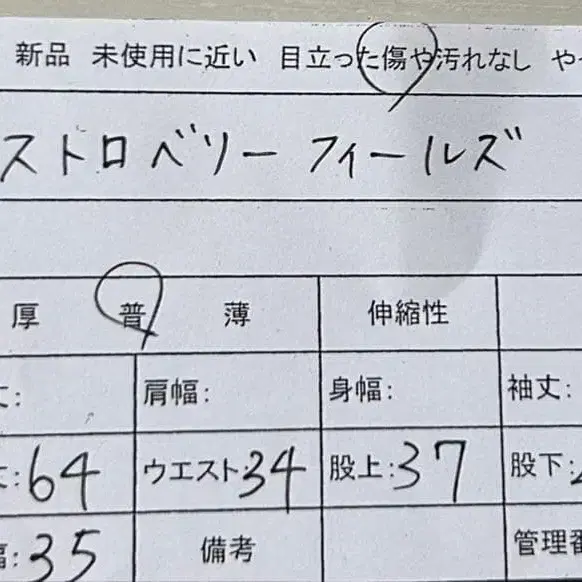 新品 未使用に近い 目立った傷や汚れなし や
ストロベリーフィールズ
厚 普 薄 伸縮性
丈: 肩幅: 身幅: 袖丈:
64 ウエスト:34 股上:37 股下:
幅:35 備考 管理番